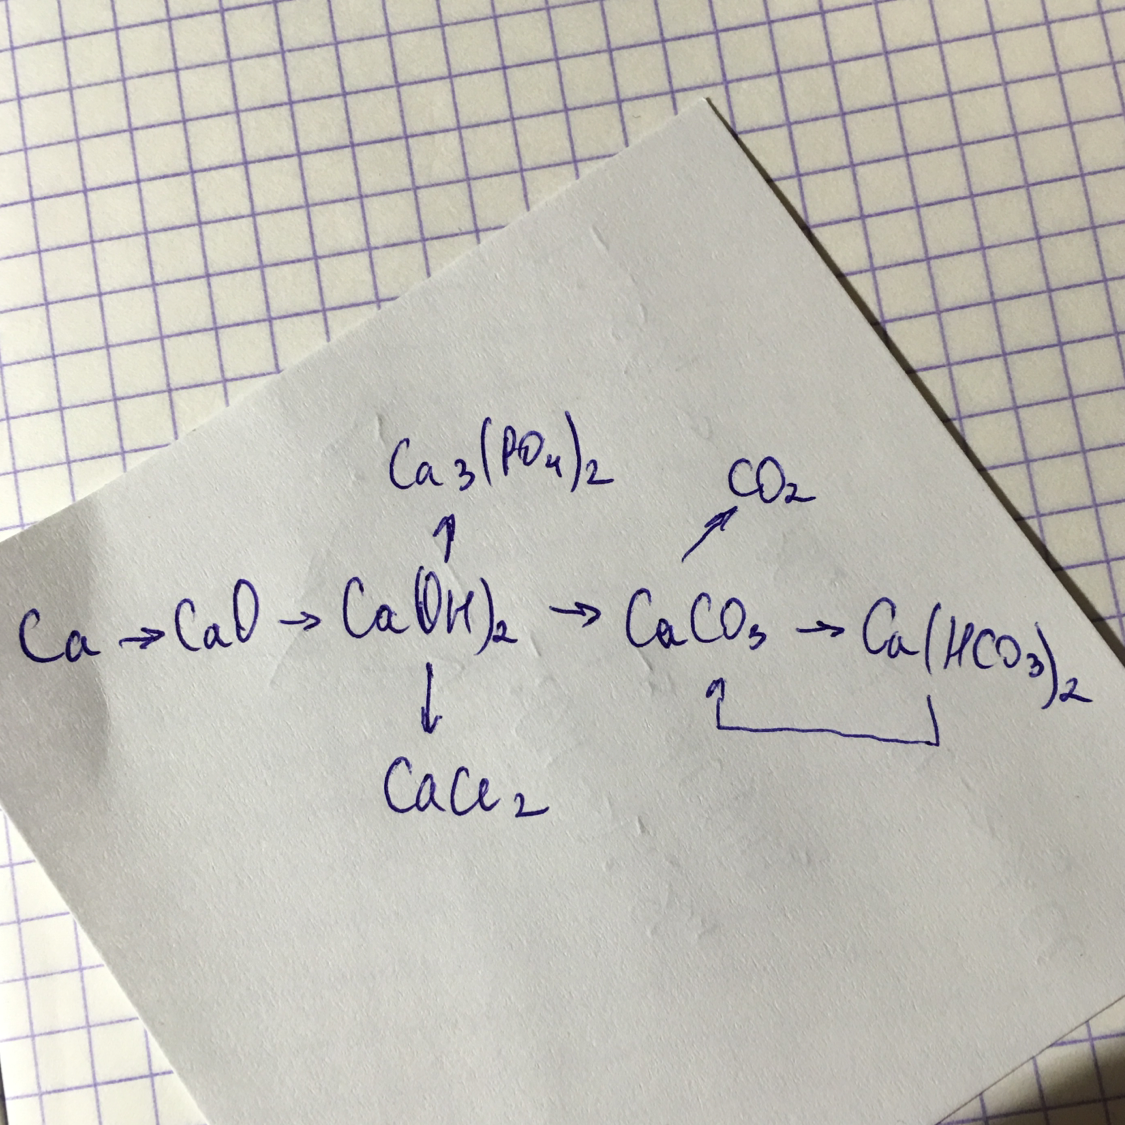 Ca3(PO4)2 CO2
↑ ↗
Ca → CaO → Ca(OH)2 → CaCO3 → Ca(HCO3)2
↓ ↑
CaCl2